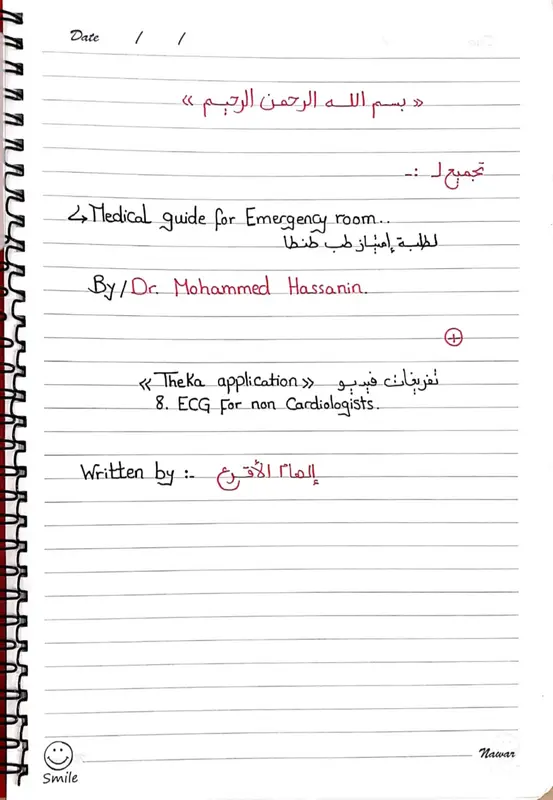 Date / /
« بسم الله الرحمن الرحيم »
تجميع لـ :-
↳ Medical guide for Emergency room..
لطلبة إمتياز طب طنطا
By / Dr. Mohammed Hassanin.
+
« TheKa application » تفريغات فيديو
8. ECG for non Cardiologists.
Written by :- إلهام الأقرع
Smile
Nawar